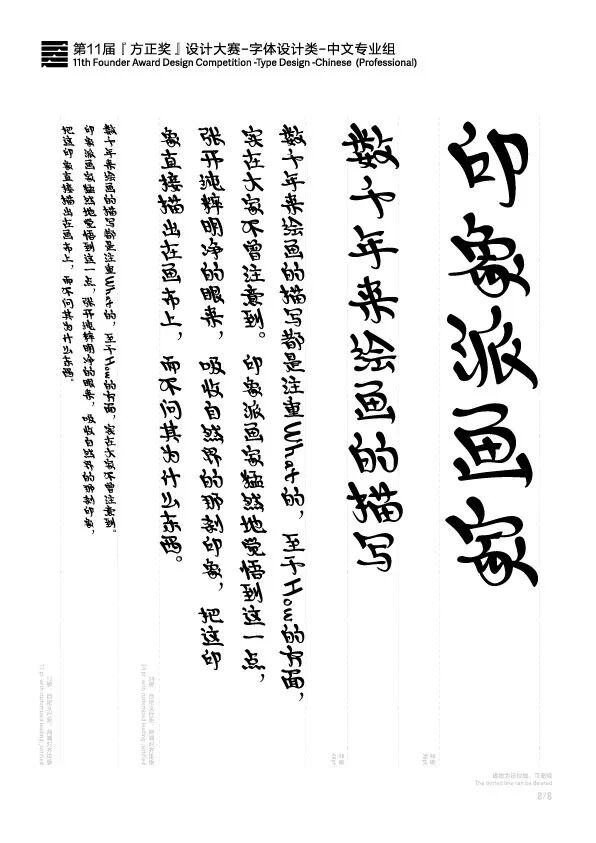 第11届『方正奖』设计大赛-字体设计类-中文专业组
11th Founder Award Design Competition -Type Design -Chinese (Professional)
印象派画家
数千年来绘画的描写
数千年来绘画的描写都是注重What的，至于How的方面，
实在大家不曾注意到。印象派画家猛然地觉悟到这一点，
张开纯粹明净的眼来，吸收自然界的那刹印象，把这印
象直接描出在画布上，而不问其为什么东西。
数千年来绘画的描写都是注重What的，至于How的方面，实在大家不曾注意到。
印象派画家猛然地觉悟到这一点，张开纯粹明净的眼来，吸收自然界的那刹印象，
把这印象直接描出在画布上，而不问其为什么东西。
pt with customized leading, justified
pt with customized leading, justified
The dotted line can be deleted
8/8